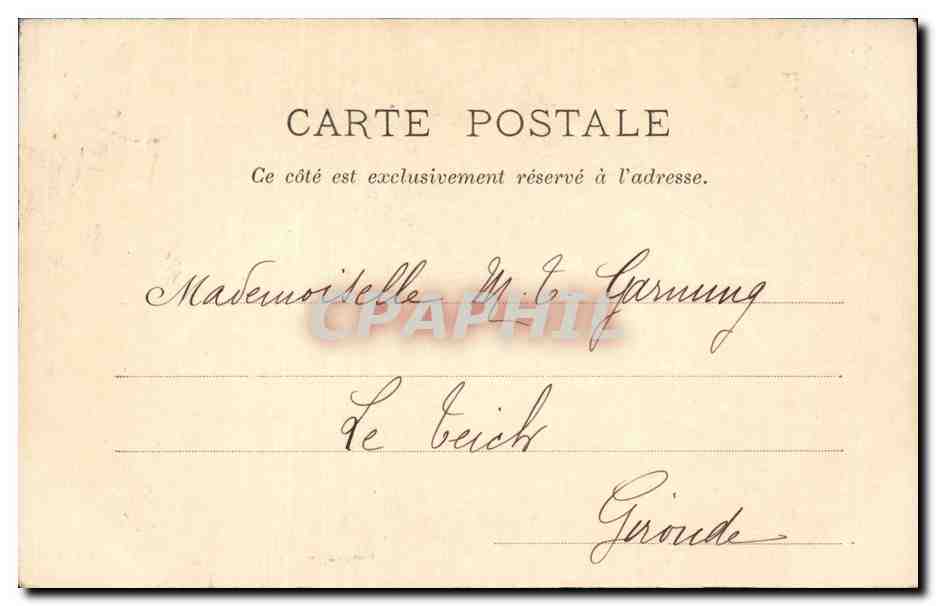 CARTE POSTALE
Ce côté est exclusivement réservé à l'adresse.
Mademoiselle M. T Garnung
CPAPHIL
Le Teich
Gironde